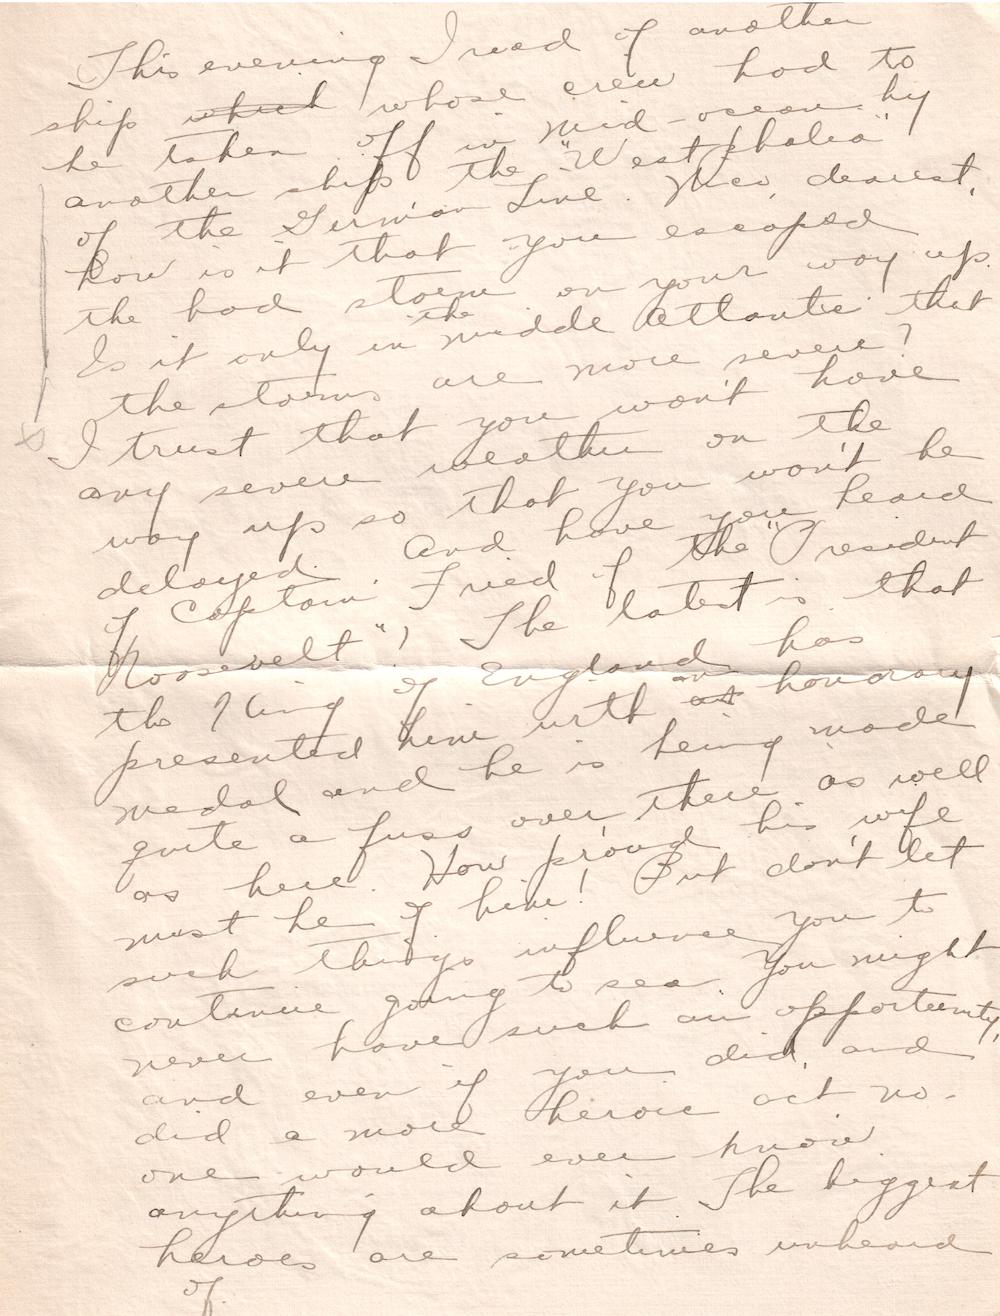 This evening I read of another
ship which whose crew had to
be taken off in mid-ocean by
another ship the "Westphalia"
of the German Line. Nico, dearest,
how is it that you escaped
the bad storm on your way up.
Is it only in the middle Atlantic that
the storms are more severe?
I trust that you won't have
any severe weather on the
way up so that you won't be
delayed. And have you heard
of Captain Fried of the "President
Roosevelt"? The latest is that
the King of England has
presented him with an honorary
medal and he is being made
quite a fuss over there as well
as here. How proud his wife
must be of him! But don't let
such things influence you to
continue going to sea. You might
never have such an opportunity,
and even if you did, and
did a more heroic act no-
one would ever know
anything about it. The biggest
heroes are sometimes unheard
of.